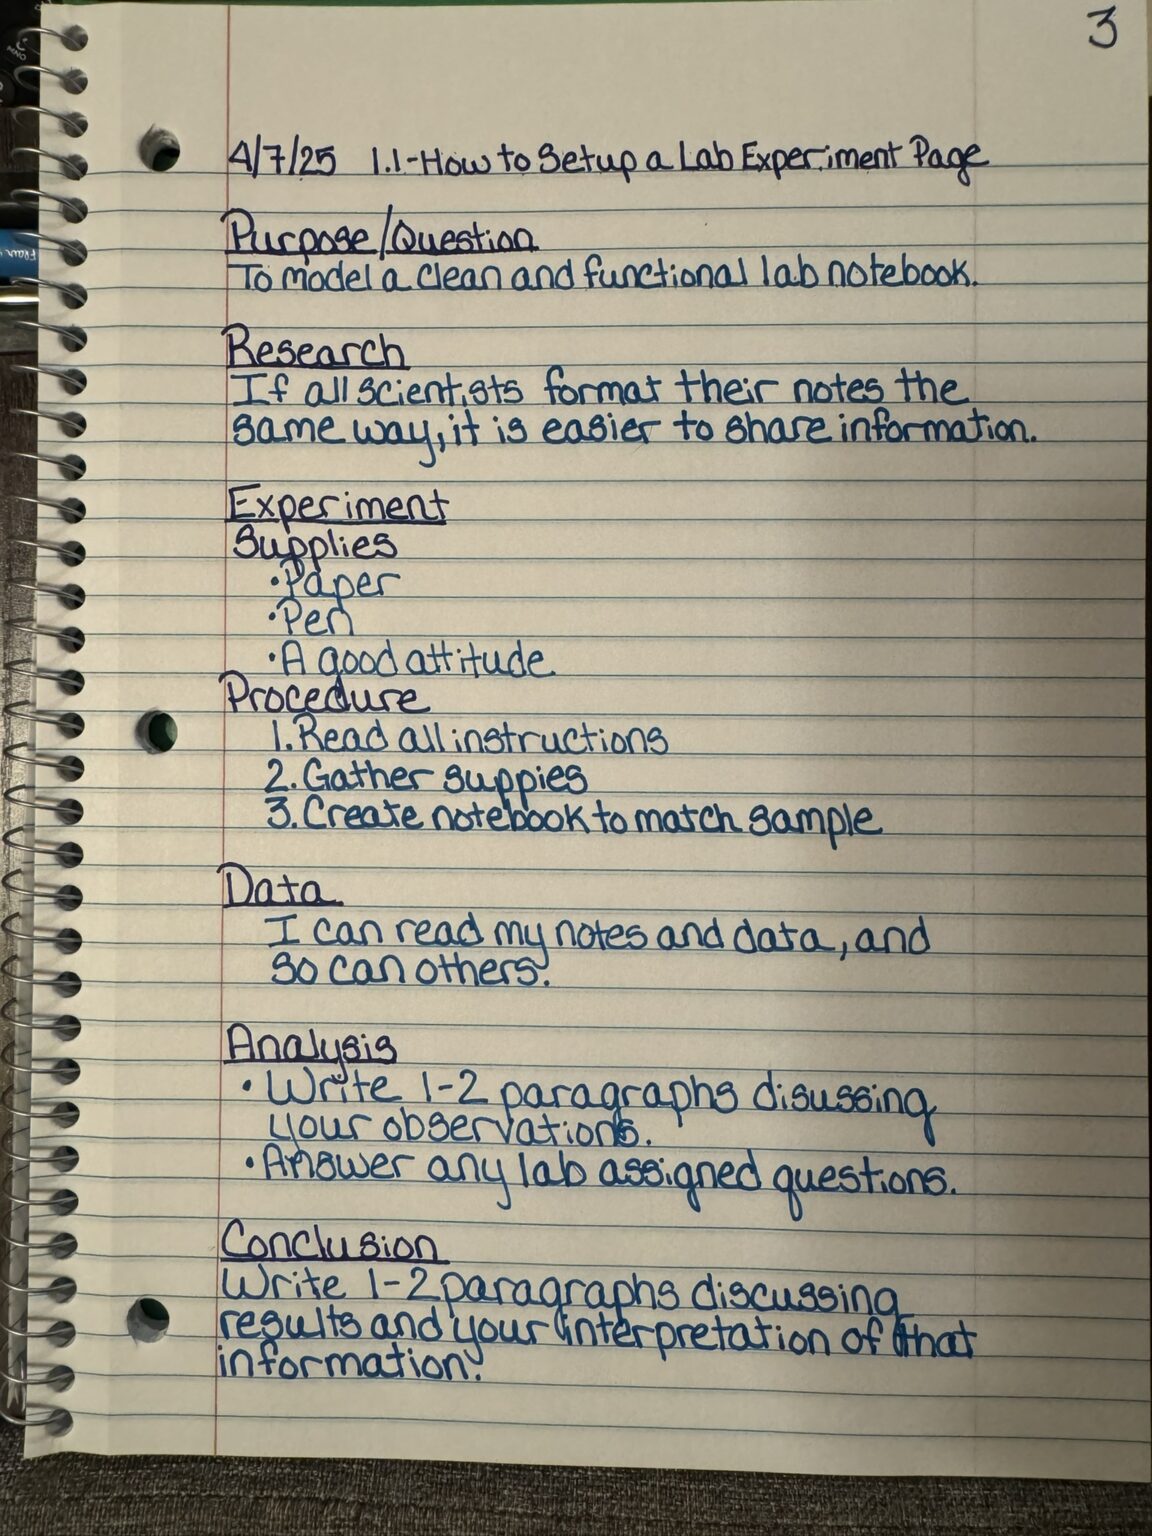 3
4/7/25 1.1-How to Setup a Lab Experiment Page
Purpose/Question
To model a clean and functional lab notebook.
Research
If all scientists format their notes the
same way, it is easier to share information.
Experiment
Supplies
•Paper
•Pen
•A good attitude
Procedure
1. Read all instructions
2. Gather suppies
3. Create notebook to match sample
Data
I can read my notes and data, and
so can others.
Analysis
• Write 1-2 paragraphs disussing
your observations.
• Answer any lab assigned questions.
Conclusion
Write 1-2 paragraphs discussing
results and your interpretation of that
information.